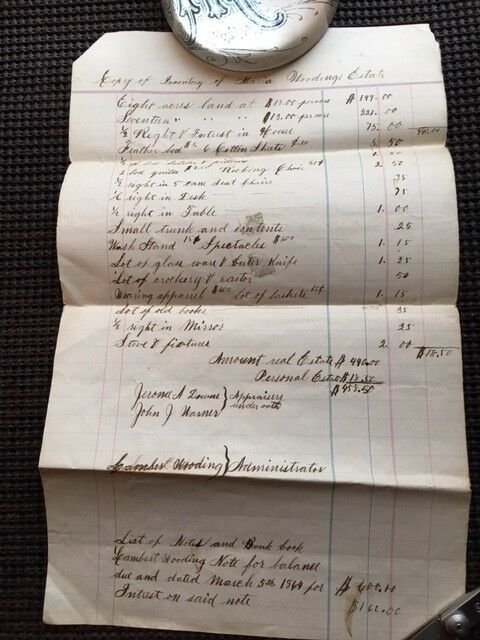 Copy of Inventory of Maria Woodings Estate
Eight acres land at $18.00 per acre $144.00
Seventeen " " " $13.00 per acre 221.00
½ Right & Intrest in House 75.00
Feather bed 6 Cotton Sheets 3.50
2 bed quilts Rocking Chair 2.50
½ right in 5 cane Seat Chairs 25
½ right in Desk 75
½ right in Table 1.00
Small trunk and contents 25
Wash Stand 15¢ Spectacles $1.00 1.15
Lot of glass ware & buter Knife 1.25
Lot of crockery & castor 50
Wearing apparrel $1.00 Lot of baskets 15¢ 1.15
Lot of old books 35
½ right in Mirror 25
Stove & fixtures 2.00 $18.50
Amount real Estate $440.00
Personal Estate $18.50
Jerome A Downs } Appraisers $458.50
John J Warner } under oath
Lambert Wooding } Administrator
List of Notes and Bank book
Lambert Wooding Note for balance
due and dated March 5th 1864 for $600.00
Intrest on said note